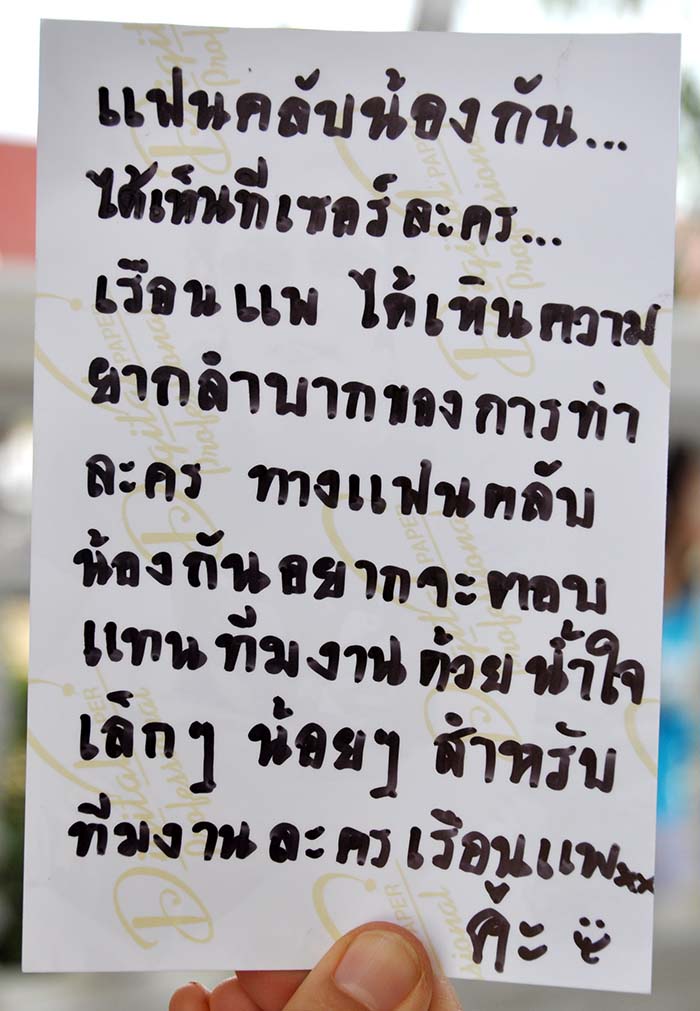 แฟนคลับน้องกัน...
ได้เห็นทีเซอร์ละคร...
เรือนแพ ได้เห็นความ
ยากลำบากของการทำ
ละคร ทางแฟนคลับ
น้องกันอยากจะตอบ
แทนทีมงานด้วยน้ำใจ
เล็กๆ น้อยๆ สำหรับ
ทีมงานละครเรือนแพ
ค่ะ